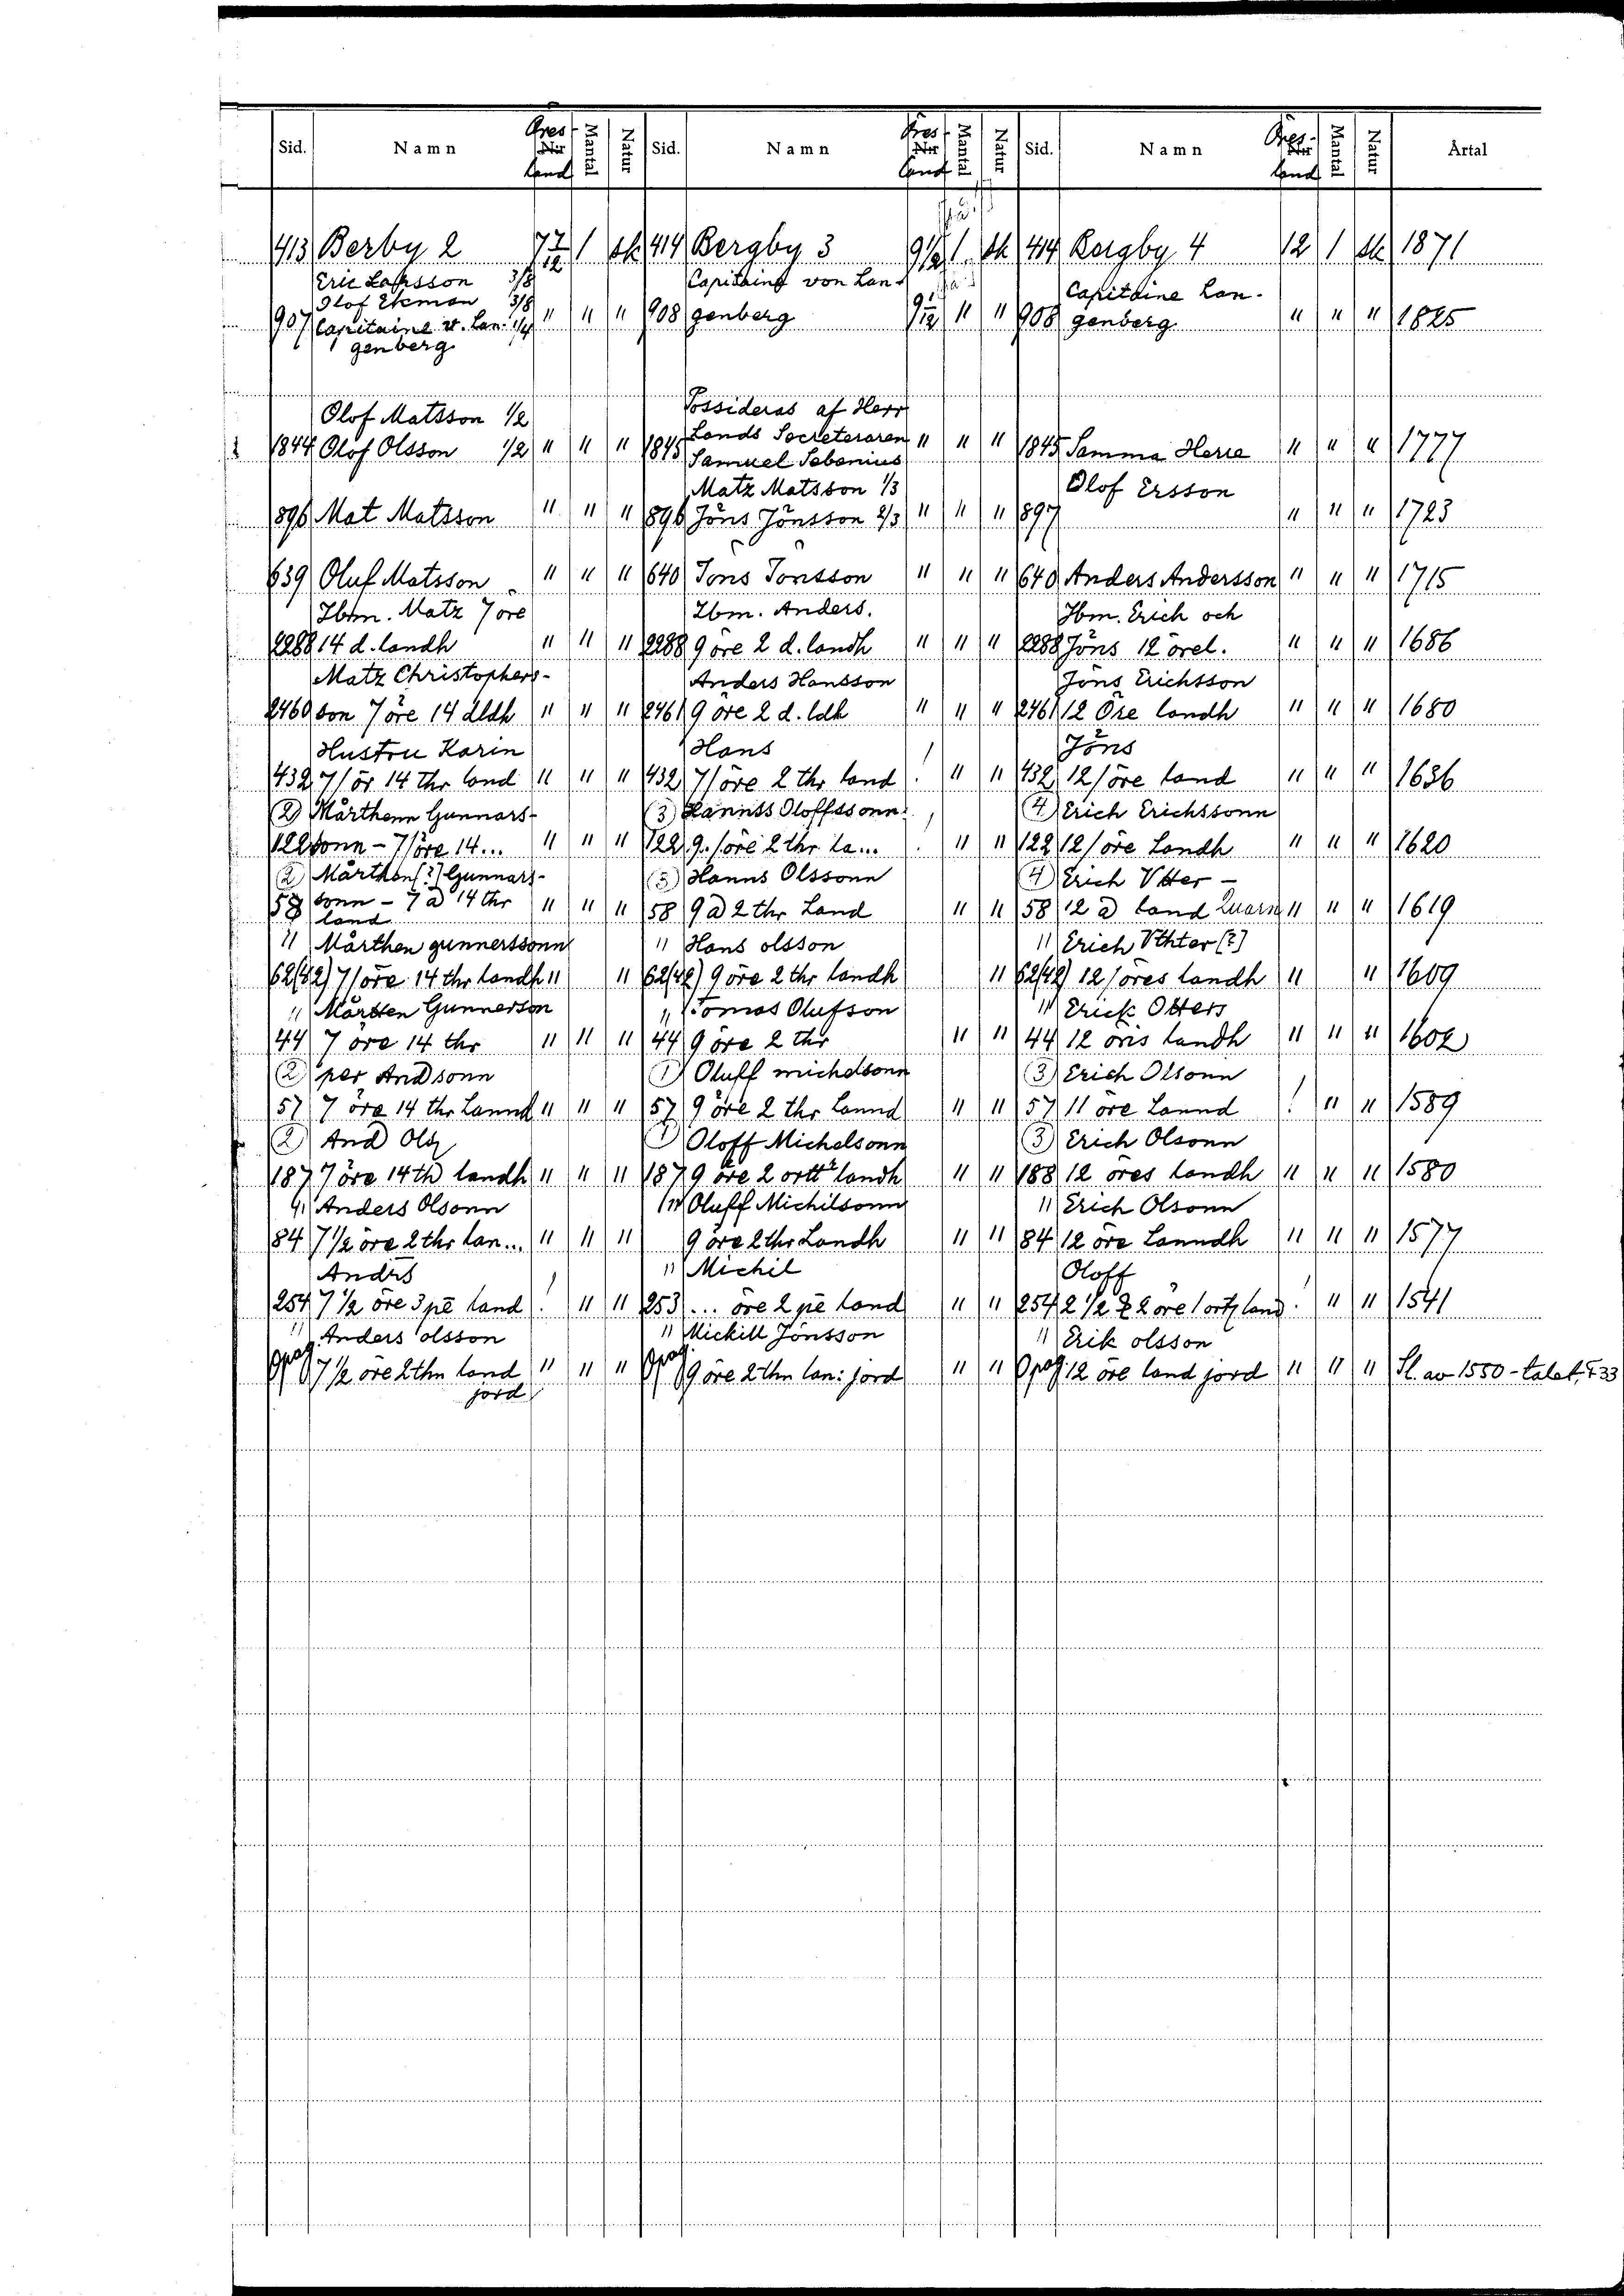 Sid. Namn Öres land Mantal Natur Sid. Namn Öres land Mantal Natur Sid. Namn Öres land Mantal Natur Årtal
413 Berby 2 7 7/12 1 sk 414 Bergby 3 9 1/12 1 sk 414 Bergby 4 12 1 sk 1871
Eric Larsson 3/8 Capitaine von Lan- Capitaine Lan-
Olof Ekman 3/8
907 Capitaine v. Lan- 1/4 " " " 908 genberg 9 1/12 " " 908 genberg " " " 1825
genberg
Olof Matsson 1/2 Possideras af Herr
1844 Olof Olsson 1/2 " " " 1845 Lands Secreteraren " " " 1845 Samma Herre " " " 1777
Samuel Sebenius
Matz Matsson 1/3 Olof Ersson
896 Mat Matsson " " " 896 Jöns Jönsson 2/3 " " " 897 " " " 1723
639 Oluf Matsson " " " 640 Jons Jonsson " " " 640 Anders Andersson " " " 1715
Ibm. Matz 7 öre Ibm. Anders. Ibm. Erich och
2288 14 d. landh " " " 2288 9 öre 2 d. landh " " " 2288 Jöns 12 örel. " " " 1686
Matz Christophers- Anders Hansson Jöns Erichsson
2460 son 7 öre 14 dldh " " " 2461 9 öre 2 d. ldh " " " 2461 12 Öre landh " " " 1680
Hustru Karin Hans Jöns
432 7/ör 14 thr land " " " 432 7/öre 2 thr land ! " " 432 12/öre land " " " 1636
(2) Mårthenn Gunnars- (3) Hannss Oloffssonn (4) Erich Erichssonn
122 sonn - 7/öre 14... " " " 122 9./öre 2 thr la... ! " " 122 12/öre Landh " " " 1620
(2) Mårthen(?) Gunnars- (3) Hanns Olssonn (4) Erich Vtter -
58 sonn - 7 a 14 thr " " " 58 9 a 2 thr Land " " 58 12 a land Quarn " " " 1619
land
" Mårthen gunnerssonn " Hans olsson " Erich Vthter [?]
62(42) 7/öre 14 thr landh " " 62(42) 9 öre 2 thr landh " 62(42) 12/öres landh " " 1609
" Mårtten Gunnerson " Tomas Olufson " Erick Otters
44 7 öre 14 thr " " " 44 9 öre 2 thr " " 44 12 öris landh " " " 1602
(2) per Andsonn (1) Oluff michelsonn (3) Erich Olsonn
57 7 öre 14 thr Lannd " " " 57 9 öre 2 thr Lannd " " 57 11 öre Lannd ! " " 1589
(2) And Ols (1) Oloff Michelsonn (3) Erich Olsonn
187 7 öre 14 th landh " " " 187 9 öre 2 ortt landh " " 188 12 öres landh " " " 1580
" Anders Olsonn " Oluff Michilsonn " Erich Olsonn
84 7 1/2 öre 2 thr lan... " " " 9 öre 2 thr Landh " " 84 12 öre Lanndh " " " 1577
Andrs " Michil Oloff
254 7 1/2 öre 3 pē land ! " " 253 ... öre 2 pē land " " 254 2 1/2 2 öre 1 ortz land ! " " 1541
" Anders olsson " Mickill Jönsson " Erik olsson
Opag 7 1/2 öre 2 thn land " " " Opag 9 öre 2 thn lan: jord " " Opag 12 öre land jord " " " Sl. av 1550-talet, F33
jord